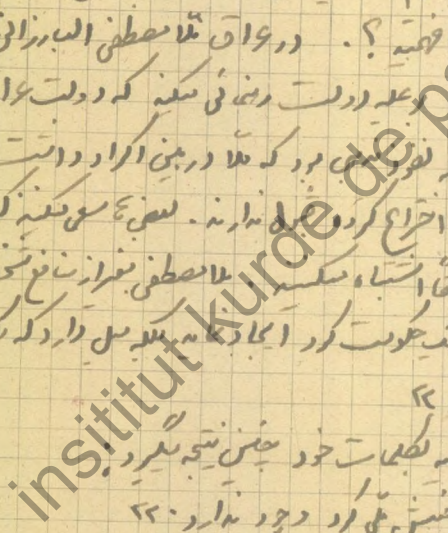 فهمید ؟. در عراق ملا مصطفی البارزانی
علیه دولت رهنمائی میکند که دولت عرا
بود که ملا در بین اکراد داشت
اختراع کرده قبول ندارند. بعضی ها سعی میکنند ک
اشتباه میکنند. ملا مصطفی بغیر از منافع شخ
حکومت کرد ایجاد نماید بلکه میل دارد که ک
۲۲
کلمات خود چنین نتیجه میگیرد:
ملی کرد وجود ندارد. ۲۲
institut kurde de p